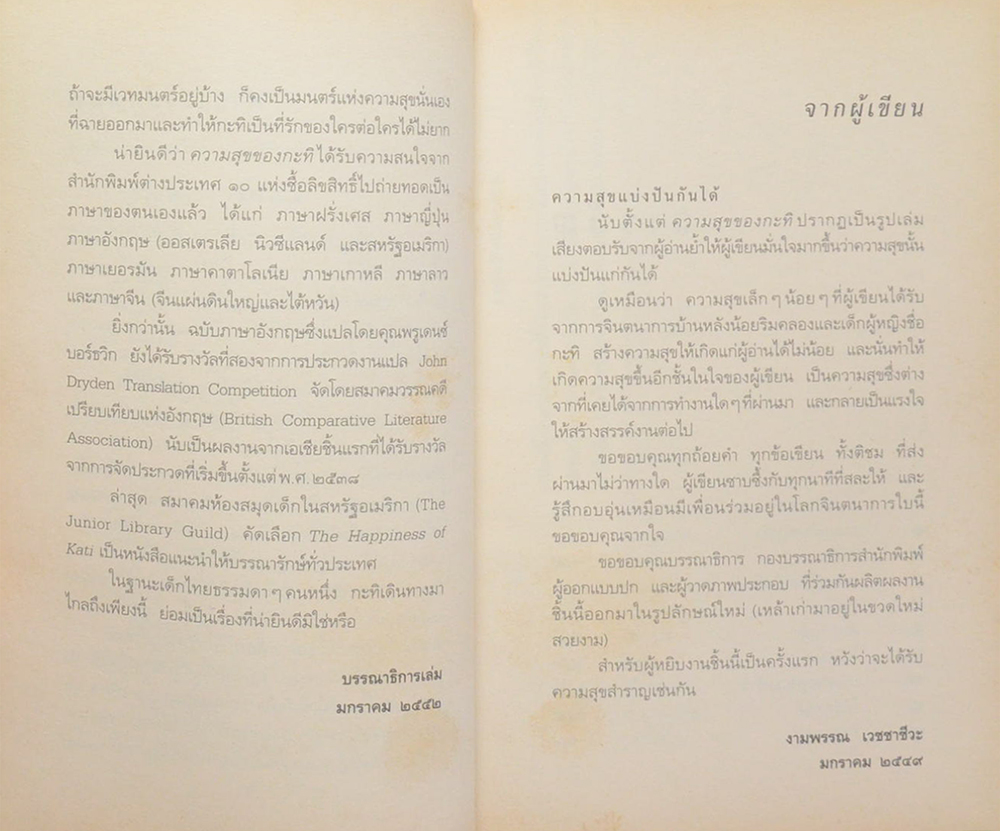 ถ้าจะมีเวทมนตร์อยู่บ้าง ก็คงเป็นมนตร์แห่งความสุขนั่นเอง
ที่ฉายออกมาและทำให้กะทิเป็นที่รักของใครต่อใครได้ไม่ยาก
น่ายินดีว่า ความสุขของกะทิ ได้รับความสนใจจาก
สำนักพิมพ์ต่างประเทศ ๑๐ แห่งซื้อลิขสิทธิ์ไปถ่ายทอดเป็น
ภาษาของตนเองแล้ว ได้แก่ ภาษาฝรั่งเศส ภาษาญี่ปุ่น
ภาษาอังกฤษ (ออสเตรเลีย นิวซีแลนด์ และสหรัฐอเมริกา)
ภาษาเยอรมัน ภาษาคาตาโลเนีย ภาษาเกาหลี ภาษาลาว
และภาษาจีน (จีนแผ่นดินใหญ่และไต้หวัน)
ยิ่งกว่านั้น ฉบับภาษาอังกฤษซึ่งแปลโดยคุณพรูเดนซ์
บอร์ธวิก ยังได้รับรางวัลที่สองจากการประกวดงานแปล John
Dryden Translation Competition จัดโดยสมาคมวรรณคดี
เปรียบเทียบแห่งอังกฤษ (British Comparative Literature
Association) นับเป็นผลงานจากเอเชียชิ้นแรกที่ได้รับรางวัล
จากการจัดประกวดที่เริ่มขึ้นตั้งแต่ พ.ศ. ๒๕๓๘
ล่าสุด สมาคมห้องสมุดเด็กในสหรัฐอเมริกา (The
Junior Library Guild) คัดเลือก The Happiness of
Kati เป็นหนังสือแนะนำให้บรรณารักษ์ทั่วประเทศ
ในฐานะเด็กไทยธรรมดาๆ คนหนึ่ง กะทิเดินทางมา
ไกลถึงเพียงนี้ ย่อมเป็นเรื่องที่น่ายินดีมิใช่หรือ
บรรณาธิการเล่ม
มกราคม ๒๕๕๒
จากผู้เขียน
ความสุขแบ่งปันกันได้
นับตั้งแต่ ความสุขของกะทิ ปรากฏเป็นรูปเล่ม
เสียงตอบรับจากผู้อ่านย้ำให้ผู้เขียนมั่นใจมากขึ้นว่าความสุขนั้น
แบ่งปันแก่กันได้
ดูเหมือนว่า ความสุขเล็กๆ น้อยๆ ที่ผู้เขียนได้รับ
จากการจินตนาการบ้านหลังน้อยริมคลองและเด็กผู้หญิงชื่อ
กะทิ สร้างความสุขให้เกิดแก่ผู้อ่านได้ไม่น้อย และนั่นทำให้
เกิดความสุขขึ้นอีกชั้นในใจของผู้เขียน เป็นความสุขซึ่งต่าง
จากที่เคยได้จากการทำงานใดๆ ที่ผ่านมา และกลายเป็นแรงใจ
ให้สร้างสรรค์งานต่อไป
ขอขอบคุณทุกถ้อยคำ ทุกข้อเขียน ทั้งติชม ที่ส่ง
ผ่านมาไม่ว่าทางใด ผู้เขียนซาบซึ้งกับทุกนาทีที่สละให้ และ
รู้สึกอบอุ่นเหมือนมีเพื่อนร่วมอยู่ในโลกจินตนาการใบนี้
ขอขอบคุณจากใจ
ขอขอบคุณบรรณาธิการ กองบรรณาธิการสำนักพิมพ์
ผู้ออกแบบปก และผู้วาดภาพประกอบ ที่ร่วมกันผลิตผลงาน
ชิ้นนี้ออกมาในรูปลักษณ์ใหม่ (เหล้าเก่ามาอยู่ในขวดใหม่
สวยงาม)
สำหรับผู้หยิบงานชิ้นนี้เป็นครั้งแรก หวังว่าจะได้รับ
ความสุขสำราญเช่นกัน
งามพรรณ เวชชาชีวะ
มกราคม ๒๕๔๙